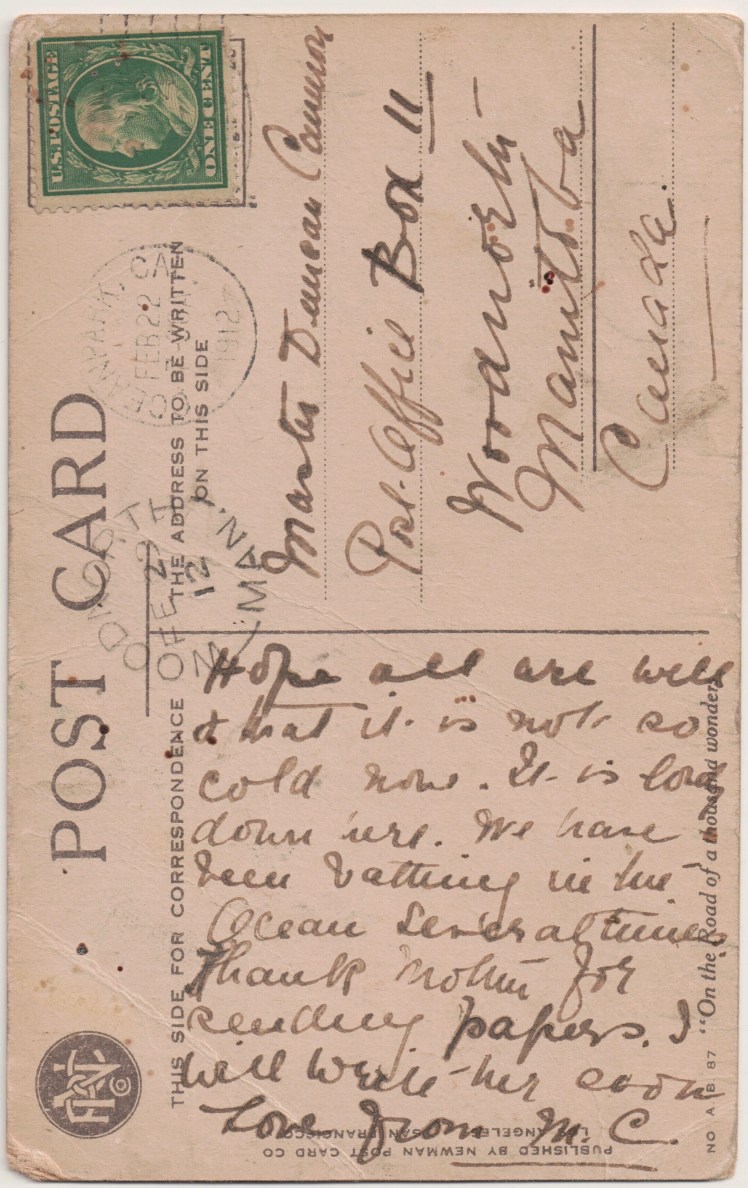 POST CARD
THIS SIDE FOR CORRESPONDENCE
THE ADDRESS TO BE WRITTEN
ON THIS SIDE
U.S. POSTAGE
ONE CENT
OCEAN PARK, CA
FEB 22
1912
WOODNORTH
FE 29
12
MAN.
Master Duncan Cameron
Post Office Box 11
Woodnorth
Manitoba
Canada.
Hope all are well
& that it is not so
cold now. It is lovely
down here. We have
been bathing in the
Ocean several times
Thank mother for
sending papers. I
will write her soon
Love from M. C.
PUBLISHED BY NEWMAN POST CARD CO
LOS ANGELES SAN FRANCISCO
NO A B 87 "On the Road of a thousand wonders